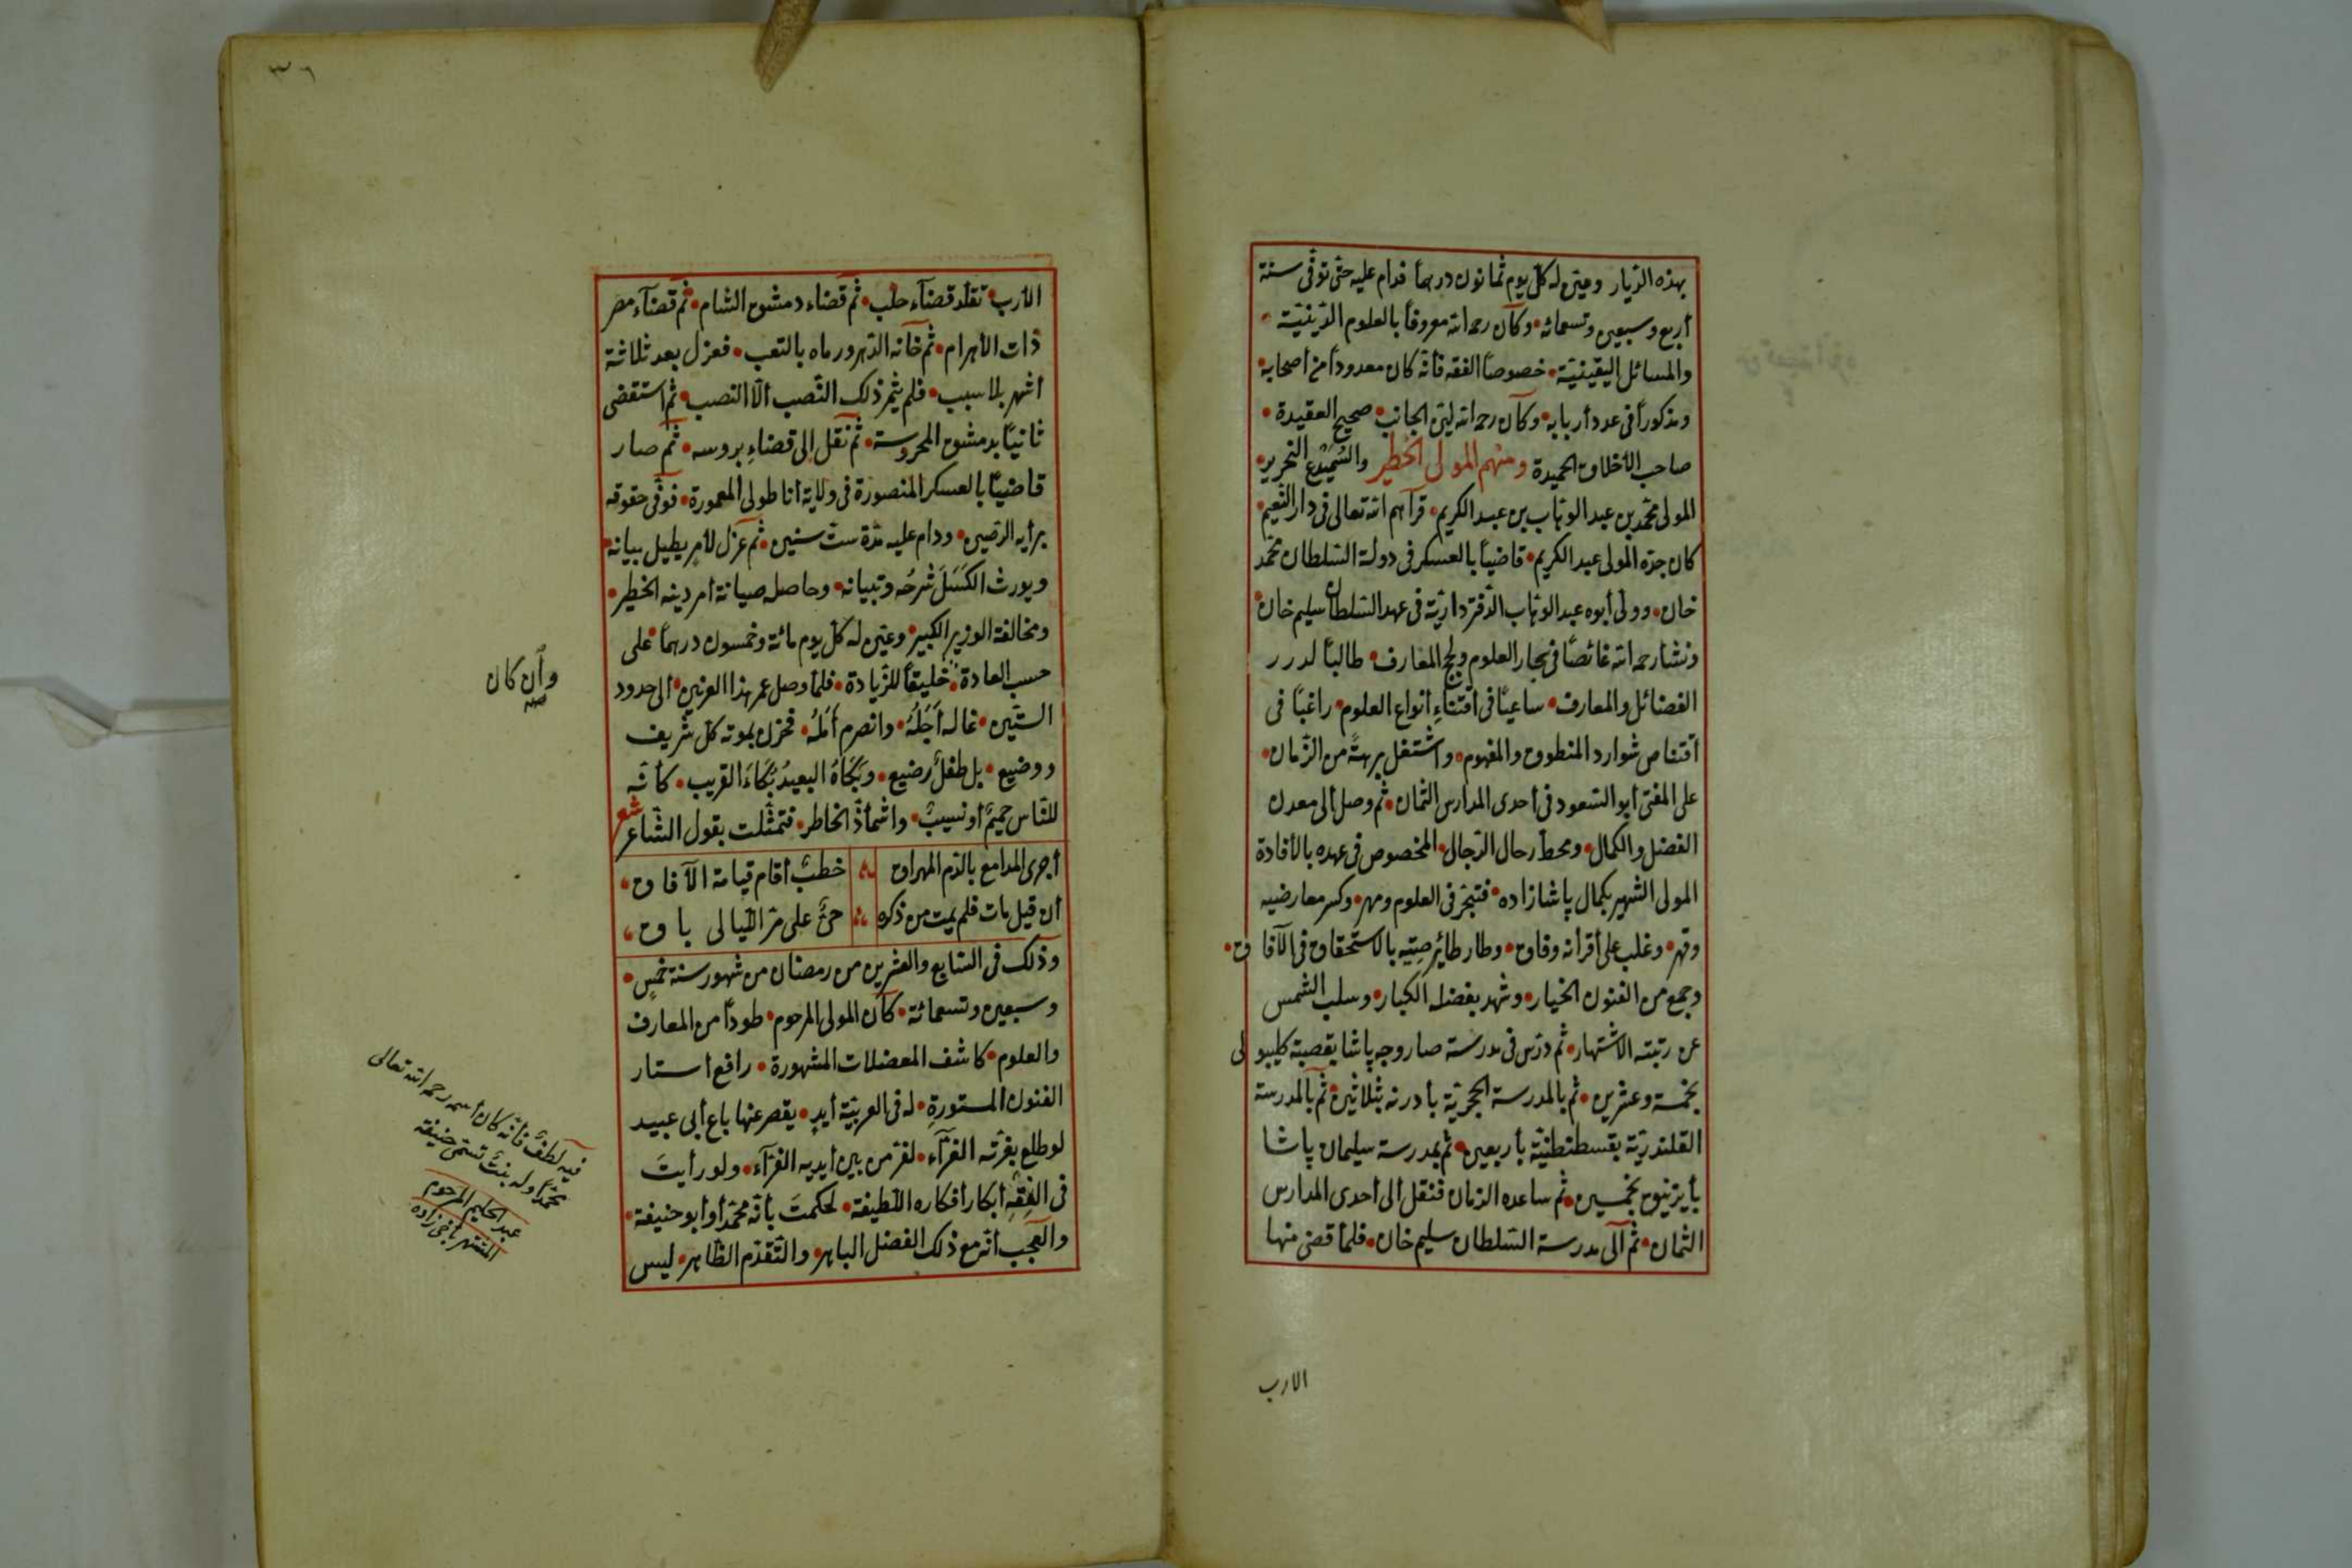 بهذه الديار وعين له كل يوم ثمانون درهماً فدام عليه حتى توفى سنة
أربع وسبعين وتسعمائة • وكان رحمه الله معروفاً بالعلوم الدينية •
والمسائل اليقينية • خصوصاً الفقه فأنه كان معدوداً من أصحابه •
ومذكوراً فى عدد أربابه • وكان رحمه الله لين الجانب • صحيح العقيدة •
صاحب الأخلاق الحميدة ومنهم المولى الخطير والسميدع النحرير •
المولى محمد بن عبد الوهاب بن عبد الكريم • قرآهم الله تعالى فى دار النعيم •
كان جده المولى عبد الكريم • قاضياً بالعسكر فى دولة السلطان محمد
خان • وولى أبوه عبد الوهاب الدفتردارية فى عهد السلطان سليم خان •
ونشأ رحمه الله غائصاً فى بحار العلوم ولجج المعارف • طالباً لدرر
الفضائل والمعارف • ساعياً فى اقتناء أنواع العلوم • راغباً فى
أقتناص شوارد المنطوق والمفهوم • واشتغل برهةً من الزمان •
على المفتى أبو السعود فى أحدى المدارس الثمان • ثم وصل ألى معدن
الفضل والكمال • ومحط رحال الرجال • المخصوص فى عهده بالأفادة
المولى الشهير بكمال پاشا زاده • فتبحر فى العلوم ومهر • وكسر معارضيه
وقهر • وغلب على أقرانه وفاق • وطار طائر صيته بالاستحقاق فى الآفاق •
وجمع من الفنون الخيار • وشهد بفضله الكبار • وسلب الشمس
عن رتبته الاشتهار • ثم درس فى مدرسة صاروجه پاشا بقصبة كليبولى
بخمسة وعشرين • ثم بالمدرسة الحجرية بأدرنه بثلاثين • ثم بالمدرسة
القلندرية بقسطنطنية بأربعين • ثم بمدرسة سليمان پاشا
بأيزنيق بخمسين • ثم ساعده الزمان فنقل ألى أحدى المدارس
الثمان • ثم ألى مدرسة السلطان سليم خان • فلما قضى منها
الارب
٣٦
الأرب • تقلد قضاء حلب • ثم قضاء دمشق الشام • ثم قضاء مصر
ذات الأهرام • ثم خانه الدهر ورماه بالتعب • فعزل بعد ثلاثة
أشهر بلا سبب • فلم يثمر ذلك النصب ألا النصب • ثم استقضى
ثانياً بدمشق المحروسة • ثم نقل إلى قضاءِ بروسه • ثم صار
قاضياً بالعسكر المنصورة فى ولاية أناطولى المعمورة • فوفى حقوقه
برأيه الرصين • ودام عليه مدة ست سنين • ثم عزل لأمر يطيل بيانه •
ويورث الكَسَلَ شرحُه وتبيانه • وحاصله صيانة أمر دينه الخطير •
ومخالفة الوزير الكبير • وعين له كل يوم مائة وخمسون درهماً • على
حسب العادة • خليقاً للزيادة • فلما وصل عمر هذا العرنين • ألى حدود
الستين • غاله أَجَلُهُ • وانصرم أَمَلُهُ • فحزن بموته كل شريف
ووضيع • بل طفلٌ رضيع • وبَكَاهُ البعيدُ بُكَاءَ القريب • كأنه
للناس حميمٌ أو نسيبٌ • واشمأز الخاطر • فتمثلت بقول الشاعر شعر
أجرى المدامع بالدم المهراق خطبٌ أقام قيامة الآفاق •
أن قيل مات فلم يمت من ذكره حىٌّ على مر الليالى باق •
وذلك فى السابع والعشرين من رمضان من شهور سنة خمسٍ •
وسبعين وتسعمائة • كان المولى المرحوم • طوداً من المعارف
والعلوم • كاشف المعضلات المشهورة • رافع أستار
الفنون المستورةِ • له فى العربية أيدٍ • يقصر عنها باع أبى عبيد
لو طلع بغرته الغرآء • لفر من بين أيديه الفرآء • ولو رأيتَ
فى الفِقْهِ أبكار أفكاره اللطيفة • لحكمتَ بأنه محمد أو أبو حنيفة •
والعجب أنه مع ذلك الفضل الباهر • والتقدم الظاهر • ليس
وأن كان
صح
فيه لطفٌ فأنه كان أسمه رحمه الله تعالى
محمداً وله بنتٌ تسمى حنيفة
عبد الحليم المرحوم
الشهير بأخى زاده